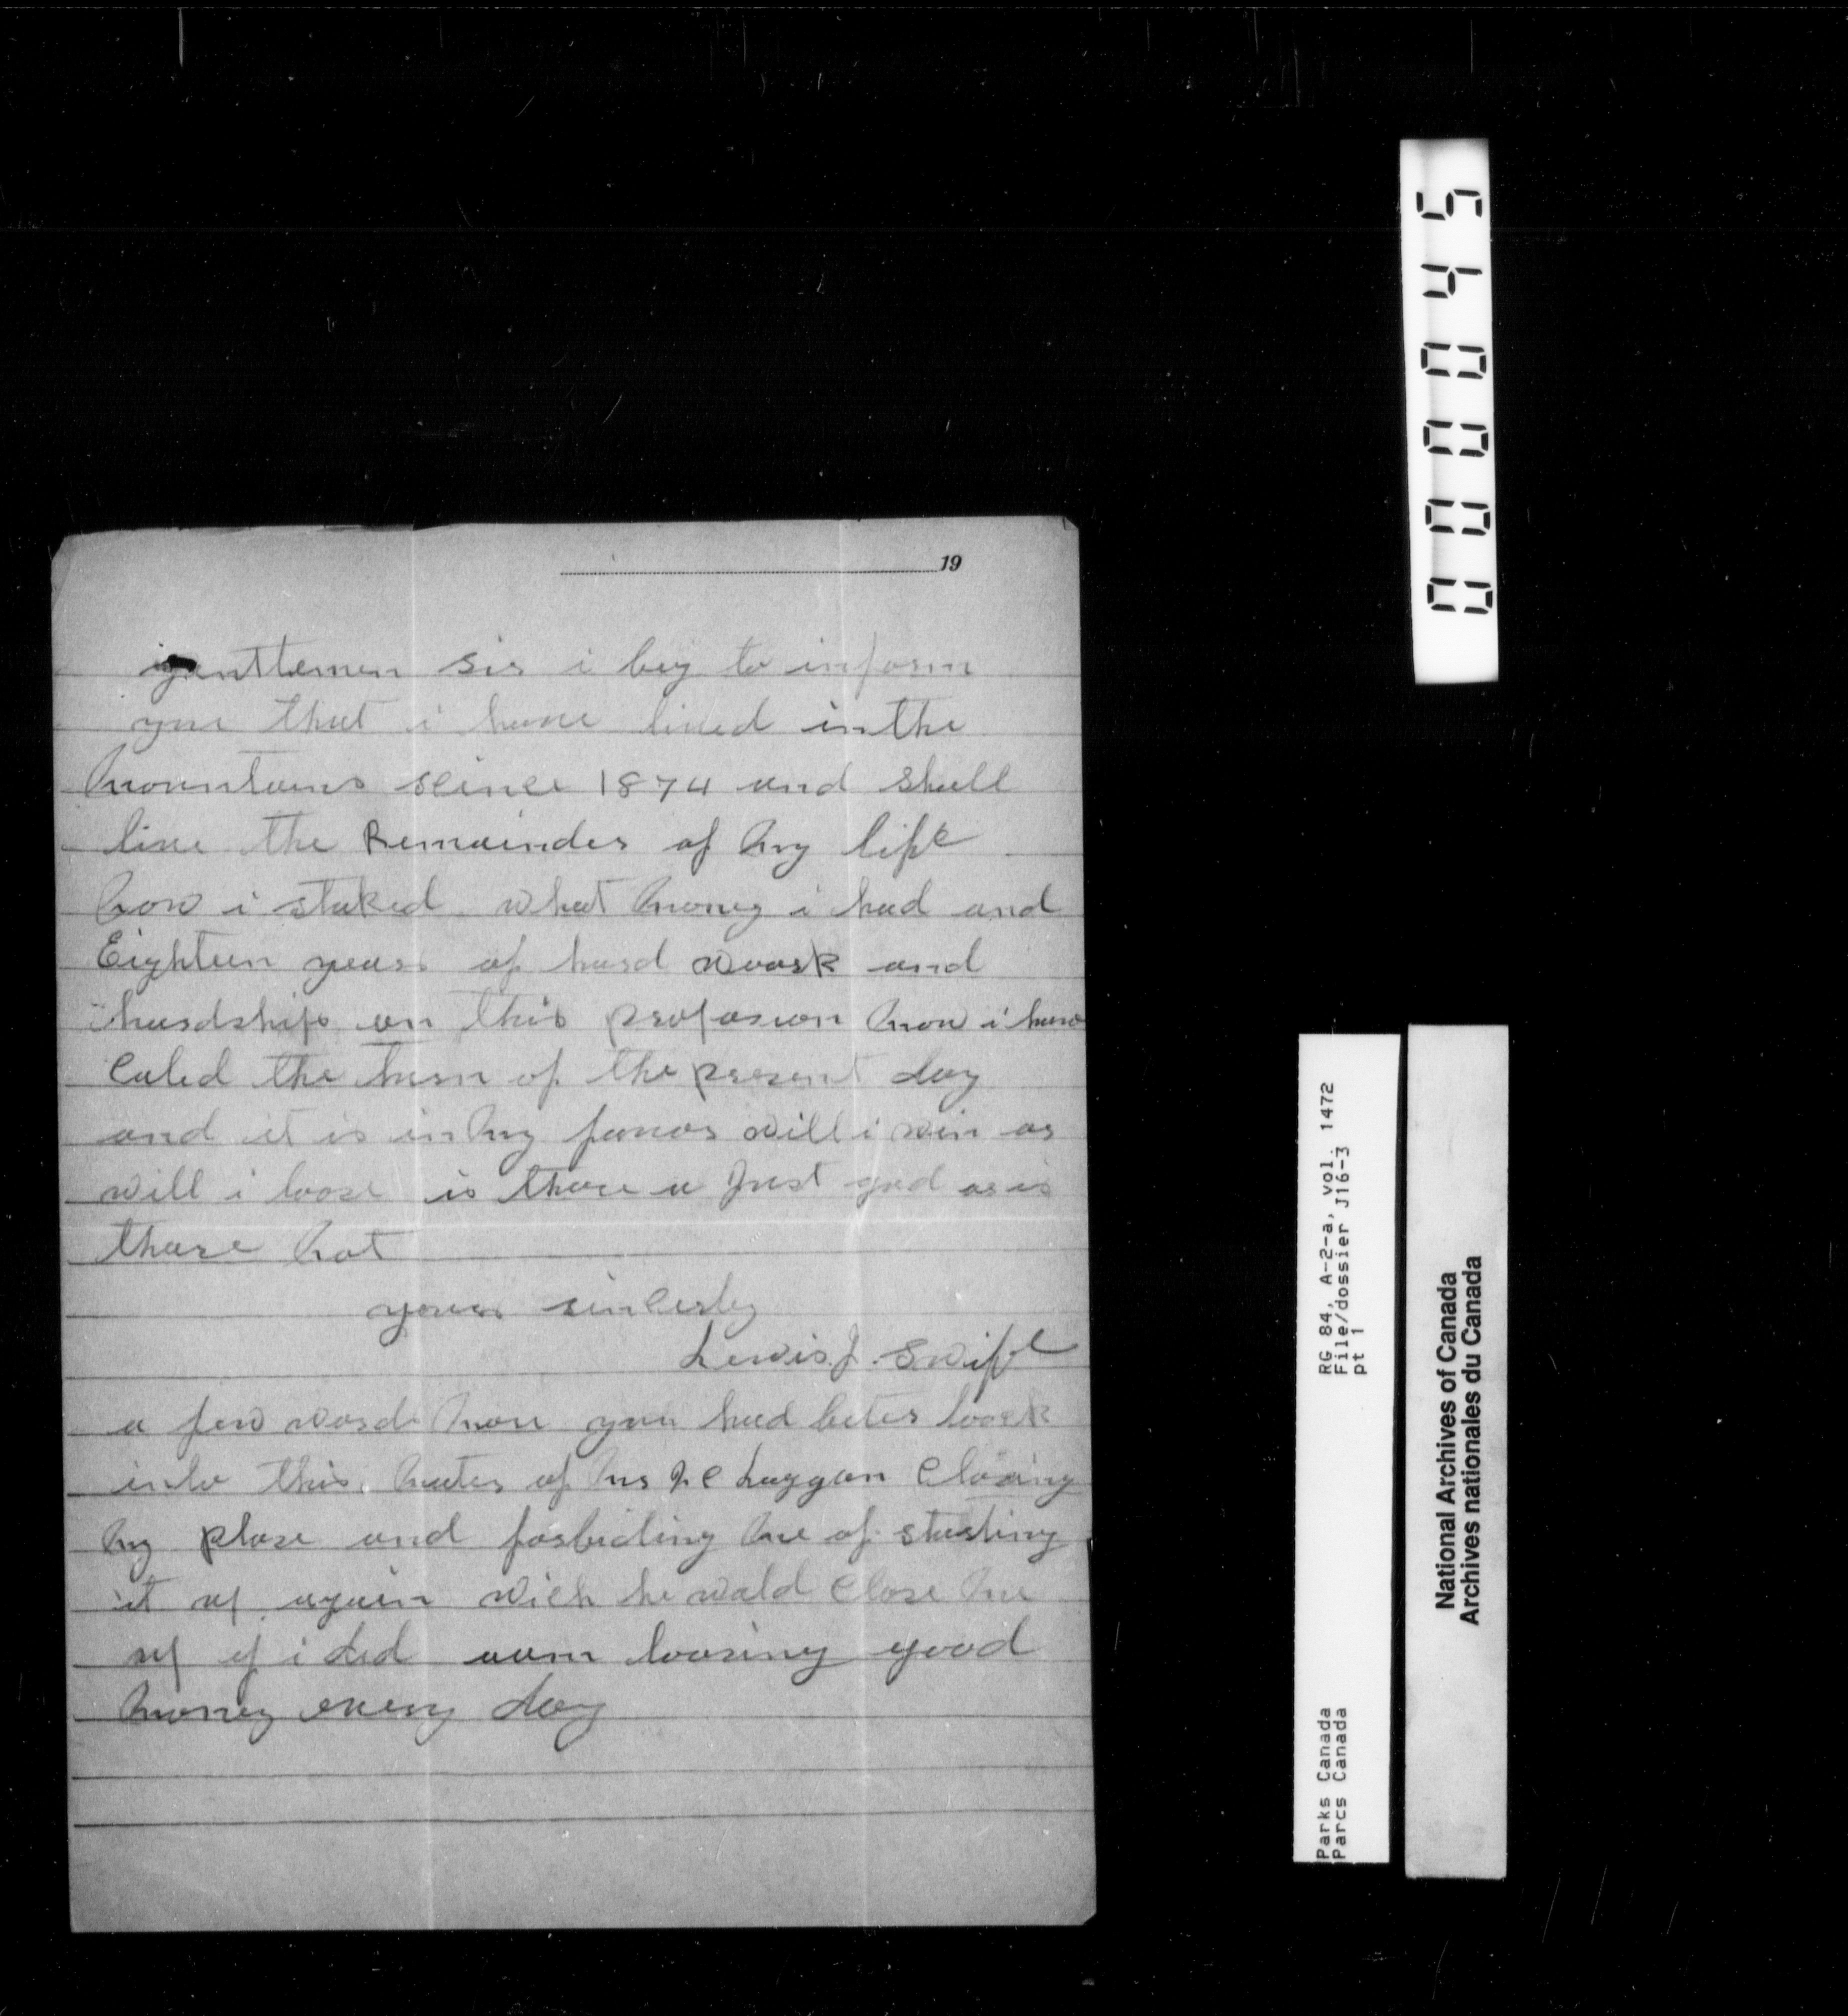 19
genttemen sir i beg to inform
you that i have lived in the
mountains seince 1874 and shall
live the Remainder of my life
now i staked what money i had and
Eighteen years of hard woork and
hardships on this profasion now i have
caled the turn of the present day
and it is in my favor will i win or
will i loose is thare a Just god or is
thare not
yours sincerly
Lewis. J. Swift
a few word more you had beter loock
into this mater of Mr Mc Laggan closing
my plase and forbiding me of starting
it up again wich he wold close me
up if i did aam loosing good
money every day
000045
RG 84, A-2-a, vol. 1472
File/dossier J16-3
pt 1
Parks Canada
Parcs Canada
National Archives of Canada
Archives nationales du Canada